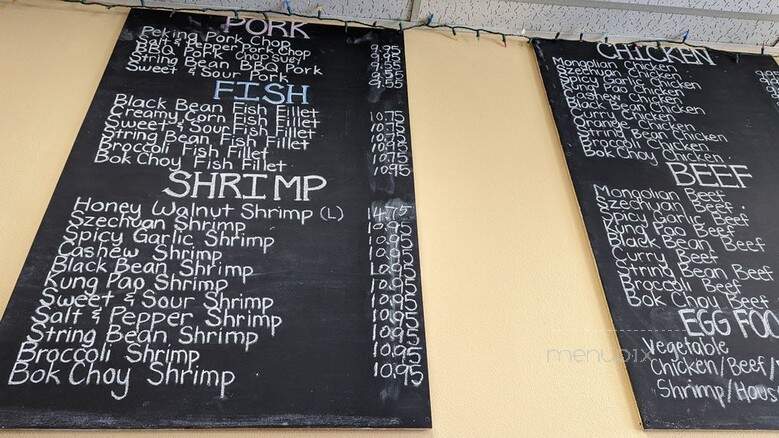 PORK
Peking Pork Chop 9.95
Salt & Pepper Pork Chop
BBQ Pork Chop Suey
String Bean BBQ Pork 9.55
Sweet & Sour Pork 9.55
FISH
Black Bean Fish Fillet 10.75
Creamy Corn Fish Fillet
Sweet & Sour Fish Fillet
String Bean Fish Fillet
Broccoli Fish Fillet 10.75
Bok Choy Fish Fillet 10.95
SHRIMP
Honey Walnut Shrimp (L) 14.75
Szechuan Shrimp 10.95
Spicy Garlic Shrimp 10.95
Cashew Shrimp 10.95
Black Bean Shrimp 10.95
Kung Pao Shrimp 10.95
Sweet & Sour Shrimp 10.95
Salt & Pepper Shrimp 10.95
String Bean Shrimp 10.95
Broccoli Shrimp 10.95
Bok Choy Shrimp 10.95
CHICKEN
Mongolian Chicken
Szechuan Chicken
Spicy Garlic Chicken
Kung Pao Chicken
Cashew Chicken
Black Bean Chicken
Curry Chicken
Orange Chicken
String Bean Chicken
Broccoli Chicken
Bok Choy Chicken
BEEF
Mongolian Beef
Szechuan Beef
Spicy Garlic Beef
Kung Pao Beef
Black Bean Beef
Curry Beef
String Bean Beef
Broccoli Beef
Bok Choy Beef
EGG FOO
Vegetable
Chicken/Beef/
Shrimp/Hous
menupix